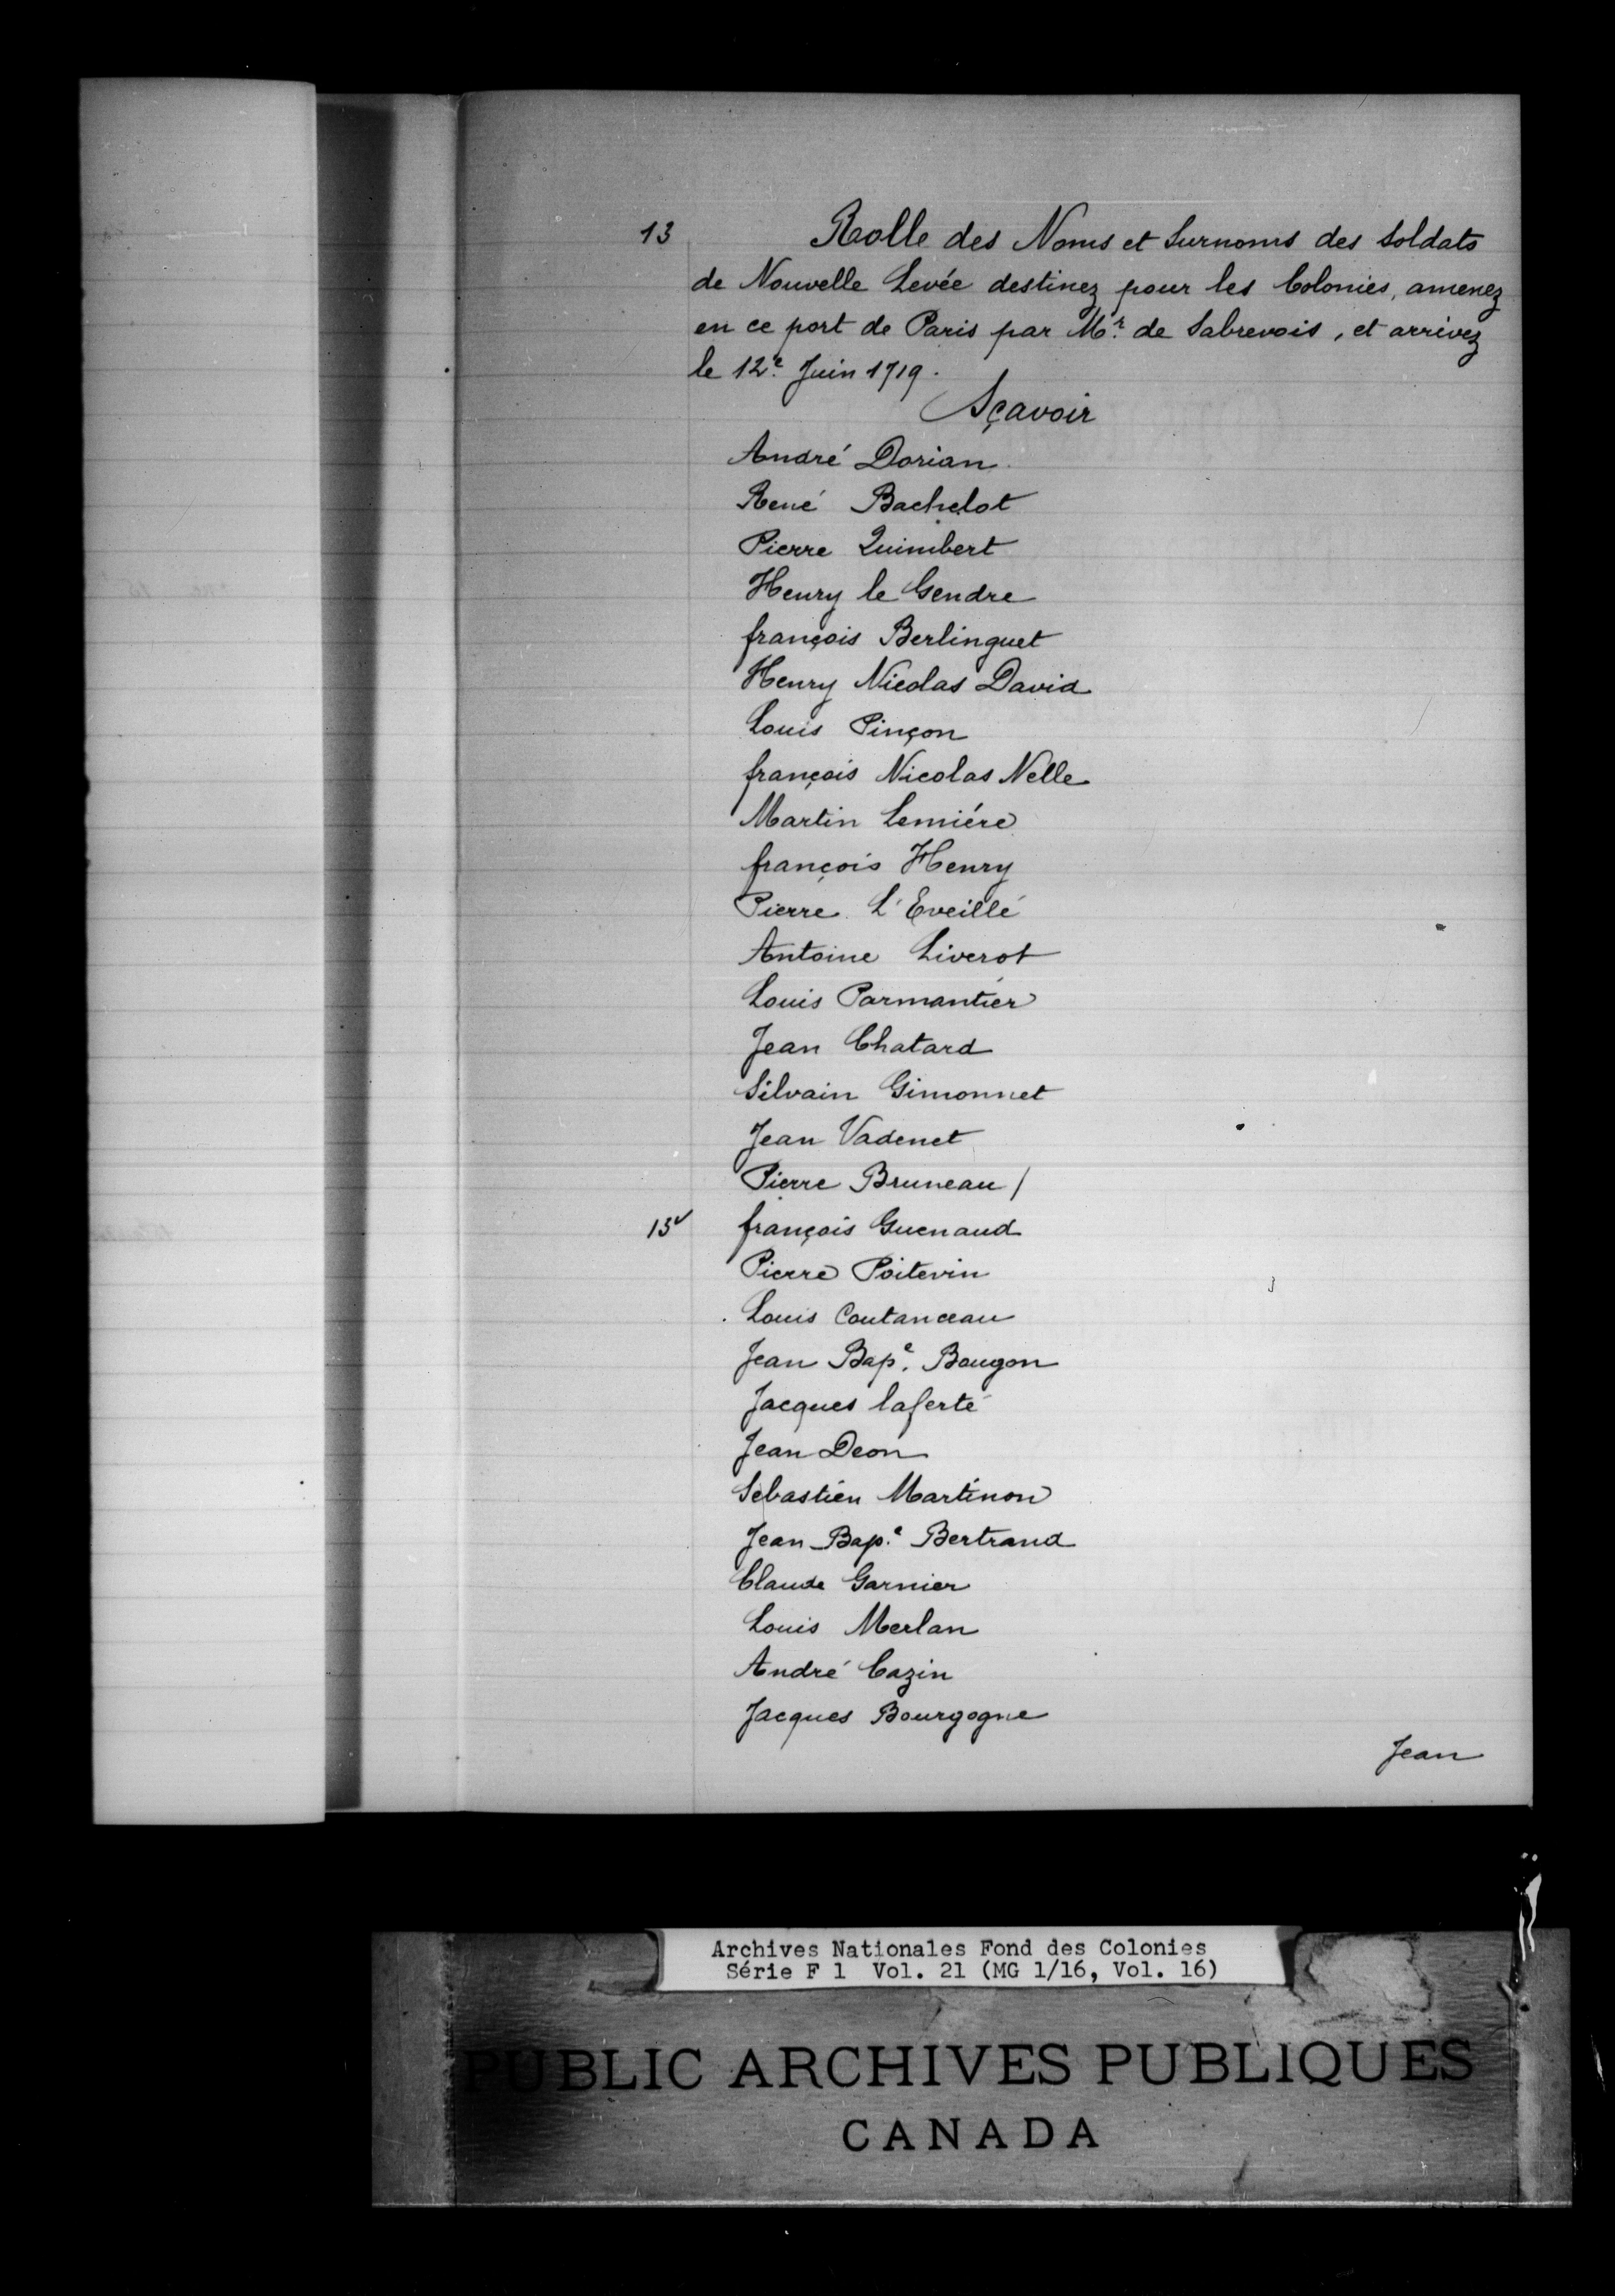 13 Rolle des Noms et Surnoms des Soldats
de Nouvelle Levée destinez pour les Colonies, amenez
en ce port de Paris par Mr. de Sabrevois, et arrivez
le 12e. Juin 1719.
Sçavoir
André Dorian
René Bachelot
Pierre Quimbert
Henry le Gendre
françois Berlinguet
Henry Nicolas David
Louis Pinçon
françois Nicolas Nelle
Martin Lemiére
françois Henry
Pierre L'Eveillé
Antoine Liverot
Louis Parmantier
Jean Chatard
Silvain Gimonnet
Jean Vadenet
Pierre Bruneau /
13v françois Guenaud
Pierre Poitevin
Louis Coutanceau
Jean Bape. Baugon
Jacques laferté
Jean Deon
Sebastien Martinon
Jean Bap.e Bertrand
Claude Garnier
Louis Merlan
André Cazin
Jacques Bourgogne
Jean
Archives Nationales Fond des Colonies
Série F 1 Vol. 21 (MG 1/16, Vol. 16)
PUBLIC ARCHIVES PUBLIQUES
CANADA